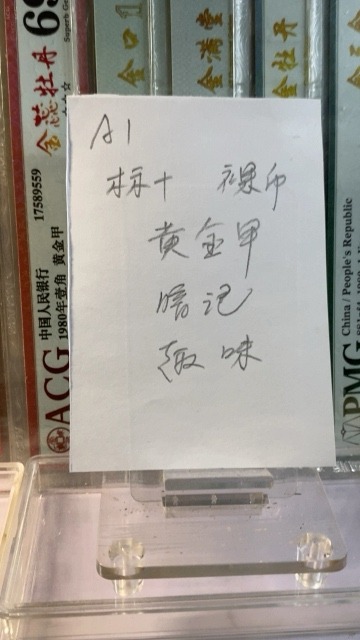 A1
标十 裸印
黄金甲
暗记
趣味
金蕊牡丹
17589559
中国人民银行
1980年壹角 黄金甲
ACG
69
金口1
金满堂
金牡丹
PMG
China / People's Republic